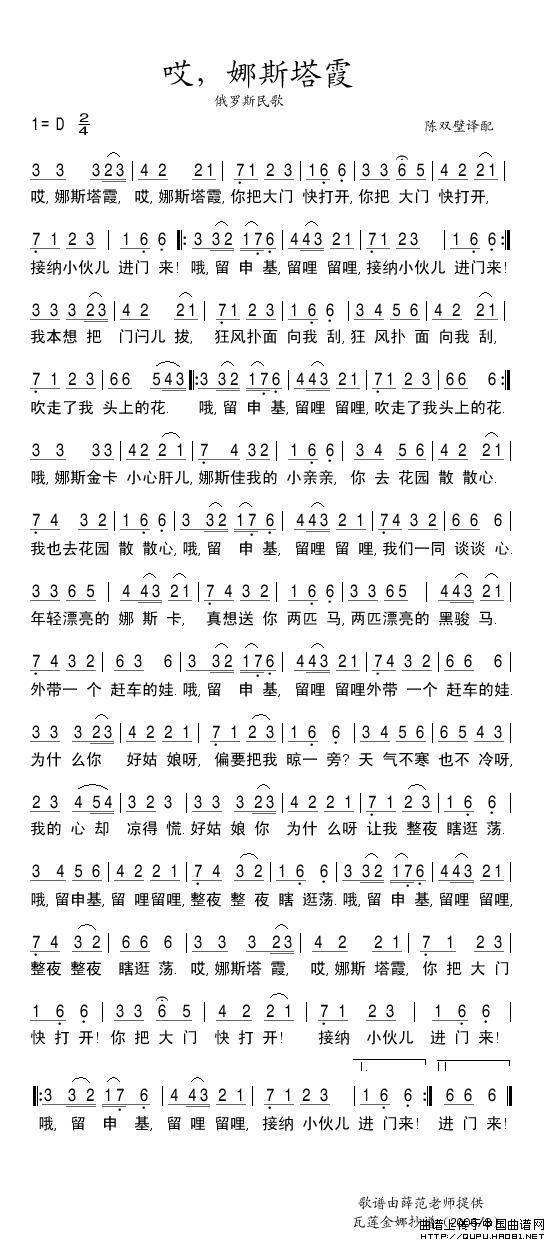 哎，娜斯塔霞
俄罗斯民歌
1= D 2/4
陈双璧译配
3 3 323 | 4 2 21 | 71 2 3 | 16 6 | 3 3 6 5 | 4 2 21 |
哎,娜斯塔霞, 哎,娜斯塔霞,你把大门 快打开,你把 大门 快打开,
7 1 2 3 | 1 6 6 ‖: 3 32 176 | 443 21 | 71 23 | 1 6 6 :‖
接纳小伙儿 进门 来! 哦,留 申 基,留哩 留哩,接纳小伙儿 进门来!
3 3 3 23 | 4 2 21 | 71 2 3 | 1 6 6 | 3 4 5 6 | 4 2 21 |
我本想 把 门闩儿 拔, 狂风扑面 向我 刮,狂 风扑 面 向我 刮,
7 1 2 3 | 66 543 ‖: 3 32 176 | 443 21 | 71 2 3 | 66 6 :‖
吹走了我 头上的花. 哦,留 申 基,留哩 留哩,吹走了我头上的花.
3 3 33 | 42 21 | 7 4 32 | 1 6 6 | 34 56 | 42 21 |
哦,娜斯金卡 小心肝儿,娜斯佳我的 小亲亲, 你 去 花园 散 散心.
7 4 32 | 1 6 6 | 3 32 17 6 | 443 2 1 | 74 3 2 | 66 6 |
我也去花园 散 散心,哦,留 申 基, 留哩 留 哩,我们一同 谈谈 心.
3 3 6 5 | 4 43 21 | 7 4 3 2 | 1 6 6 | 3 3 65 | 4 43 21 |
年轻漂亮的 娜 斯 卡, 真想送 你 两匹 马,两匹漂亮的 黑骏 马.
7 4 3 2 | 6 3 6 | 3 32 176 | 443 21 | 74 3 2 | 66 6 |
外带一 个 赶车的娃.哦,留 申 基, 留哩 留哩外带 一个 赶车的娃.
3 3 3 23 | 4 2 2 1 | 7 1 2 3 | 1 6 6 | 3 4 5 6 | 6 5 4 3 |
为什 么你 好姑 娘呀, 偏要把我 晾一 旁? 天 气不寒 也不 冷呀,
2 3 4 54 | 3 2 3 | 3 3 3 23 | 4 2 2 1 | 7 1 2 3 | 1 6 6 |
我的 心 却 凉得 慌.好姑 娘 你 为什 么呀 让我 整夜 瞎逛 荡.
3 4 5 6 | 4 2 2 1 | 7 4 3 2 | 1 6 6 | 3 32 176 | 443 21 |
哦,留申基,留 哩留哩,整夜 整 夜 瞎 逛荡.哦,留 申 基,留哩 留哩,
7 4 3 2 | 6 6 6 | 3 3 3 23 | 4 2 21 | 7 1 2 3 |
整夜 整夜 瞎逛 荡. 哎,娜斯塔 霞, 哎,娜斯 塔霞, 你 把 大门
1 6 6 | 3 3 6 5 | 4 2 21 | 7 1 23 | 1 6 6 |
快 打 开! 你 把 大 门 快 打 开! 接纳 小伙儿 进 门 来!
Ⅰ. Ⅱ.
‖: 3 3 2 17 6 | 4 43 21 | 7 1 23 | 1 6 6 :‖ 66 6 ‖
哦, 留 申 基, 留 哩 留哩, 接纳 小伙儿 进 门来! 进门 来!
歌谱由薛范老师提供
瓦莲金娜抄谱
曲谱上传于中国曲谱网
HTTP://QUPU.HAO81.NET